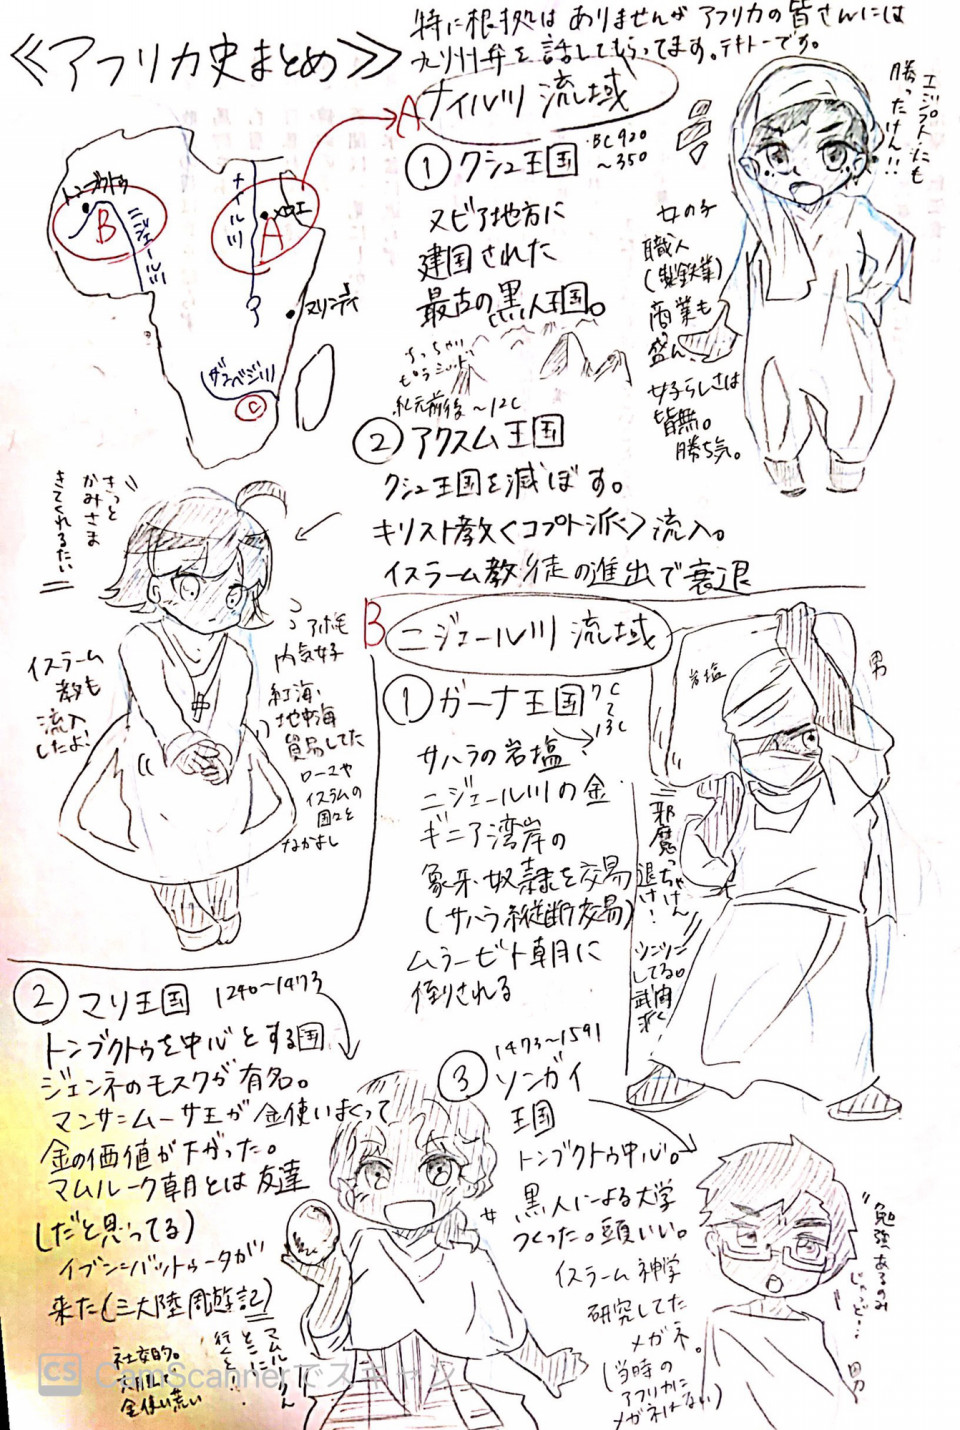 ≪アフリカ史まとめ≫
特に根拠はありませんがアフリカの皆さんには
九州弁を話してもらってます。テキトーです。
トンブクトゥ
B
ニジェール川
ナイル川
メロエ
A
マリンディ
ザンベジ川
C
A
ナイル川 流域
① クシュ王国
BC920
～350
ヌビア地方に
建国された
最古の黒人王国。
ちっちゃい
ピラミッド
エジプトにも
勝ったけん!!
女の子
職人
(製鉄業)
商業も
盛ん
女子らしさは
皆無。
勝ち気。
紀元前後～12C
② アクスム王国
クシュ王国を滅ぼす。
キリスト教<コプト派>流入。
イスラーム教徒の進出で衰退
きっと
かみさま
きてくれるたい
イスラーム
教も
流入
したよ!
アホ毛
内気女子
紅海・
地中海
貿易してた
ローマや
イスラムの
国々と
なかよし
B
ニジェール川 流域
① ガーナ王国
7C
～
13C
サハラの岩塩
ニジェール川の金
ギニア湾岸の
象牙・奴隷を交易
(サハラ縦断交易)
ムラービト朝に
倒される
岩塩
男
邪魔っちゃけん
退け!
ツンツン
してる。
② マリ王国 1240～1473
トンブクトゥを中心とする国
ジェンネのモスクが有名。
マンサ=ムーサ王が金使いまくって
金の価値が下がった。
マムルーク朝とは友達
(だと思ってる)
イブン=バットゥータが
来た(三大陸周遊記)
社交的。
金使い荒い
女
③
1473～1591
ソンガイ
王国
トンブクトゥ中心。
黒人による大学
つくった。頭いい。
イスラーム神学
研究してた
メガネ。
(当時の
アフリカに
メガネはない)
勉強あるのみ
じゃっど…
男
CS CamScannerでスキャン